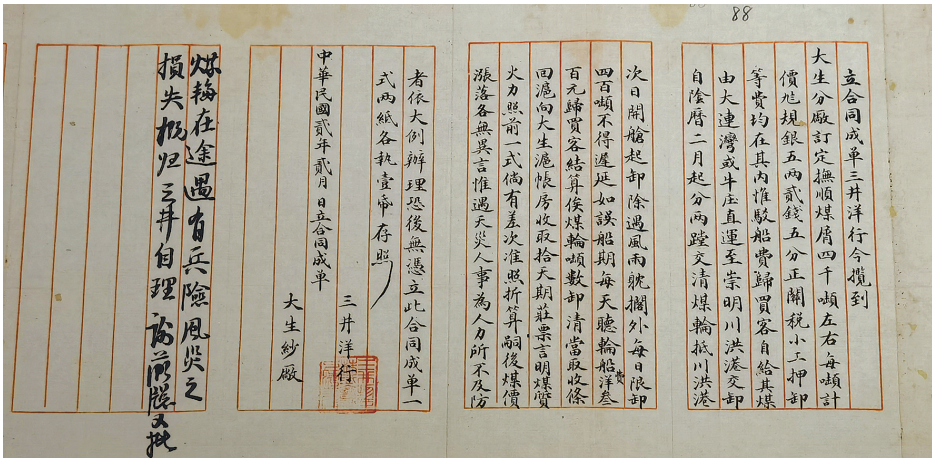 88
立合同成单三井洋行今攬到
大生分廠訂定撫順煤屑四千噸左右每噸計
價九規銀五兩貳錢五分正關税小工押卸
等費均在其內惟駁船費歸買客自給其煤
由大連灣或牛庄直運至崇明川洪港交卸
自陰曆二月起分兩蹚交清煤輪抵川洪港
次日開艙起卸除遇風雨躭擱外每日限卸
四百噸不得遲延如誤船期每天聽輪船洋叁
費
百元歸買客結算俟煤輪噸數卸清當取收條
回滬向大生滬帳房收取拾天期莊票言明煤質
火力照前一式倘有差次准照折算嗣後煤價
漲落各無異言惟遇天災人事為人力所不及防
者依大例辦理恐後無憑立此合同成單一
式兩紙各執壹帋存照
中華民國貳年貳月 日立合同成單
三井洋行
大生紗廠
煤輪在途遇有兵險風災之
損失概归三井自理 又批